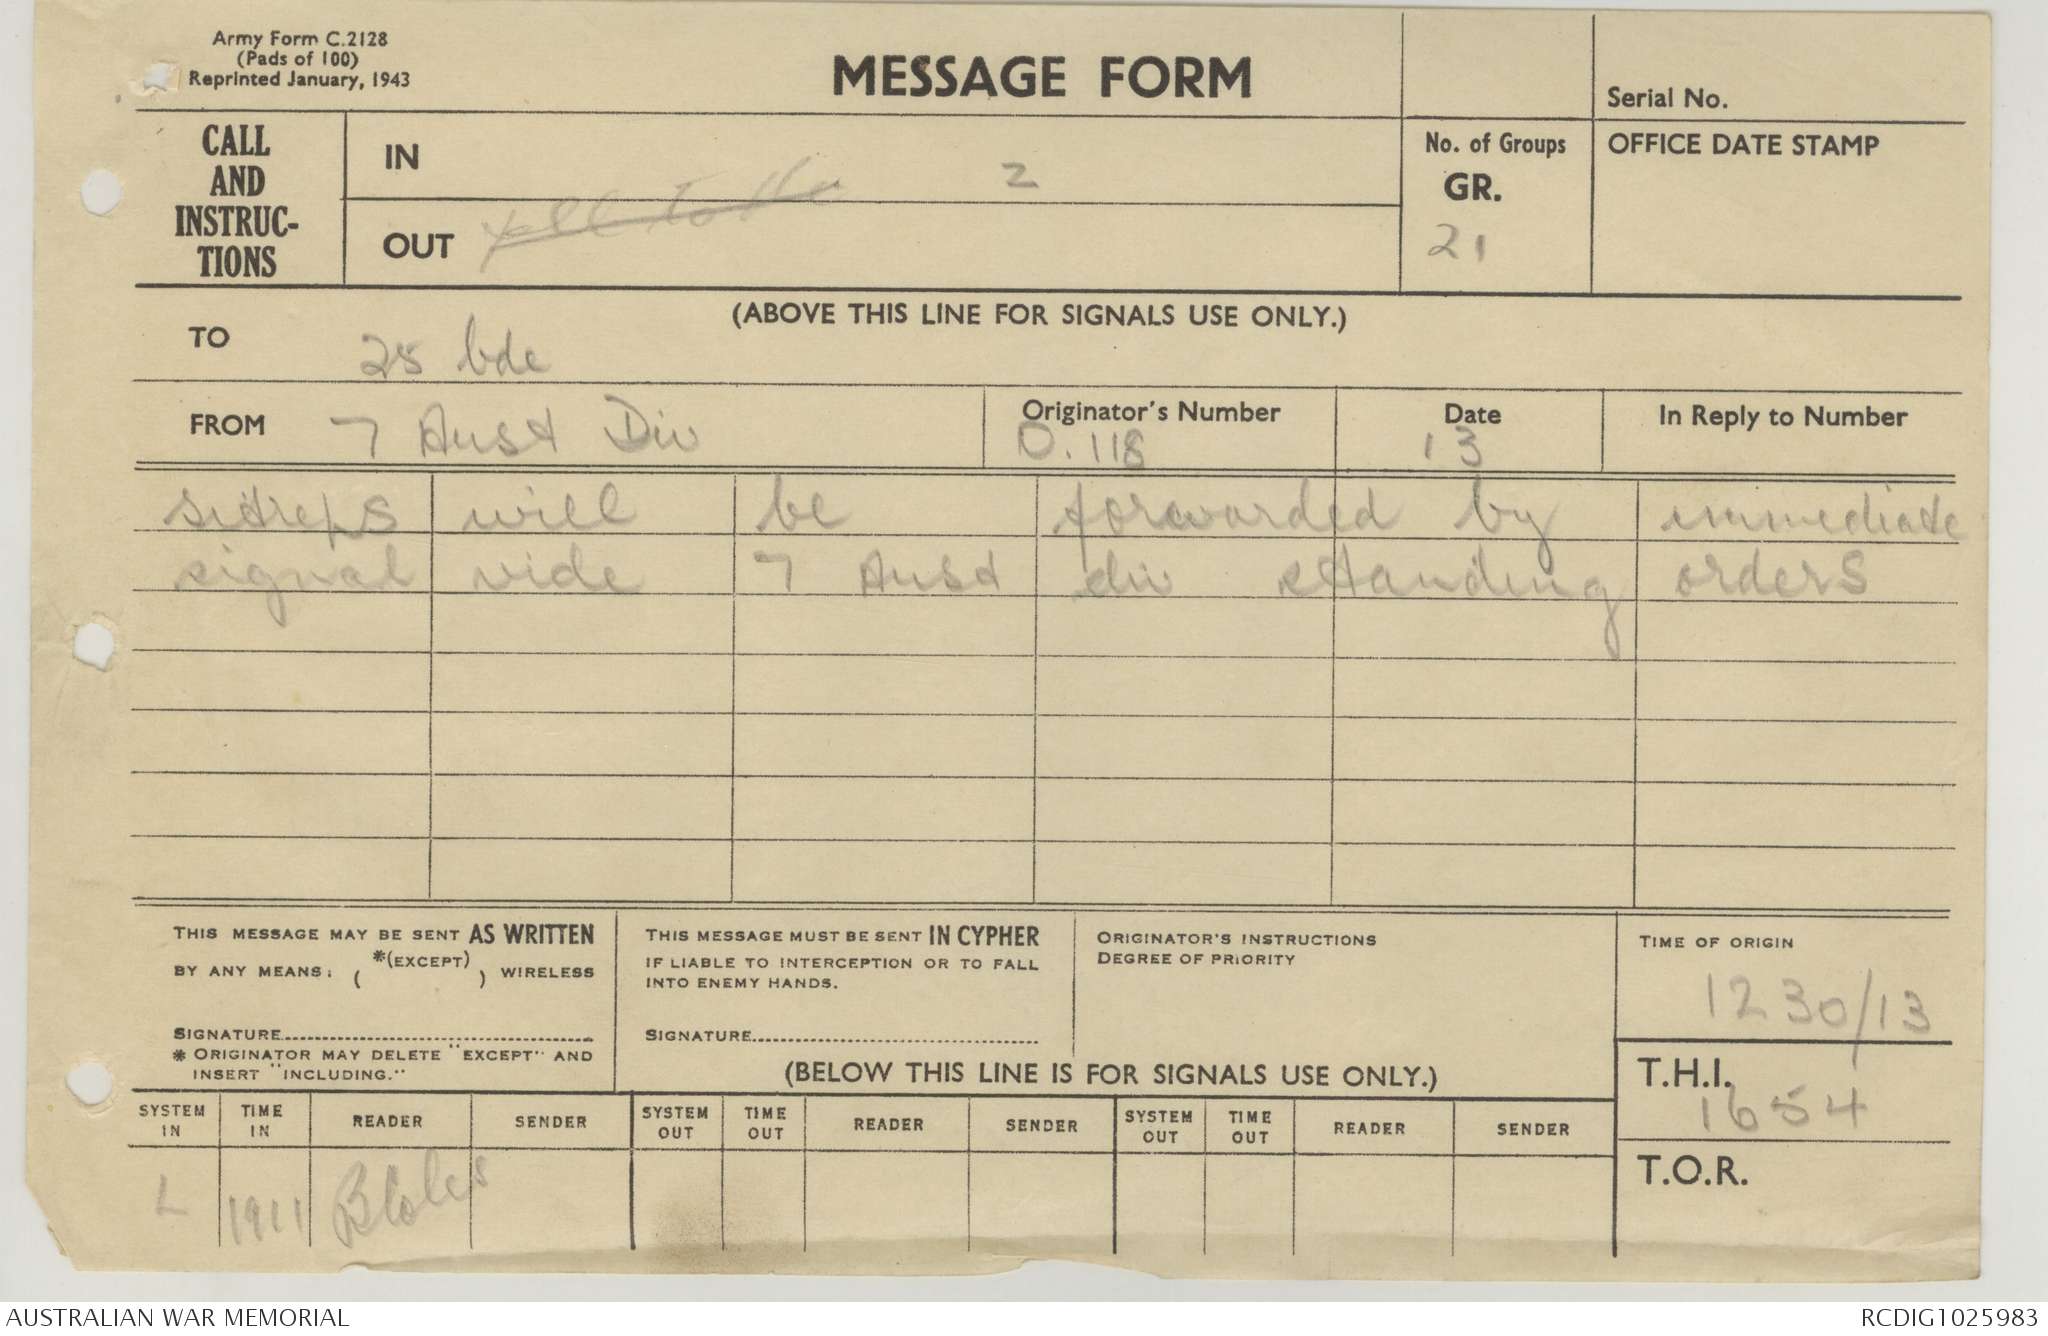 Army Form C.2128
(Pads of 100)
Reprinted January, 1943
MESSAGE FORM
Serial No.
CALL
AND
INSTRUC-
TIONS
IN
z
OUT
No. of Groups
GR.
21
OFFICE DATE STAMP
(ABOVE THIS LINE FOR SIGNALS USE ONLY.)
TO 25 bde
FROM 7 Aust Div
Originator's Number
O.118
Date
13
In Reply to Number
sitreps will be forwarded by immediate
signal vide 7 Aust div standing orders
THIS MESSAGE MAY BE SENT AS WRITTEN
BY ANY MEANS: ( *(EXCEPT) ) WIRELESS
SIGNATURE
* ORIGINATOR MAY DELETE "EXCEPT" AND
INSERT "INCLUDING."
THIS MESSAGE MUST BE SENT IN CYPHER
IF LIABLE TO INTERCEPTION OR TO FALL
INTO ENEMY HANDS.
SIGNATURE
ORIGINATOR'S INSTRUCTIONS
DEGREE OF PRIORITY
TIME OF ORIGIN
1230/13
(BELOW THIS LINE IS FOR SIGNALS USE ONLY.)
T.H.I.
1654
T.O.R.
SYSTEM IN TIME IN READER SENDER SYSTEM OUT TIME OUT READER SENDER SYSTEM OUT TIME OUT READER SENDER
L 1911
AUSTRALIAN WAR MEMORIAL
RCDIG1025983